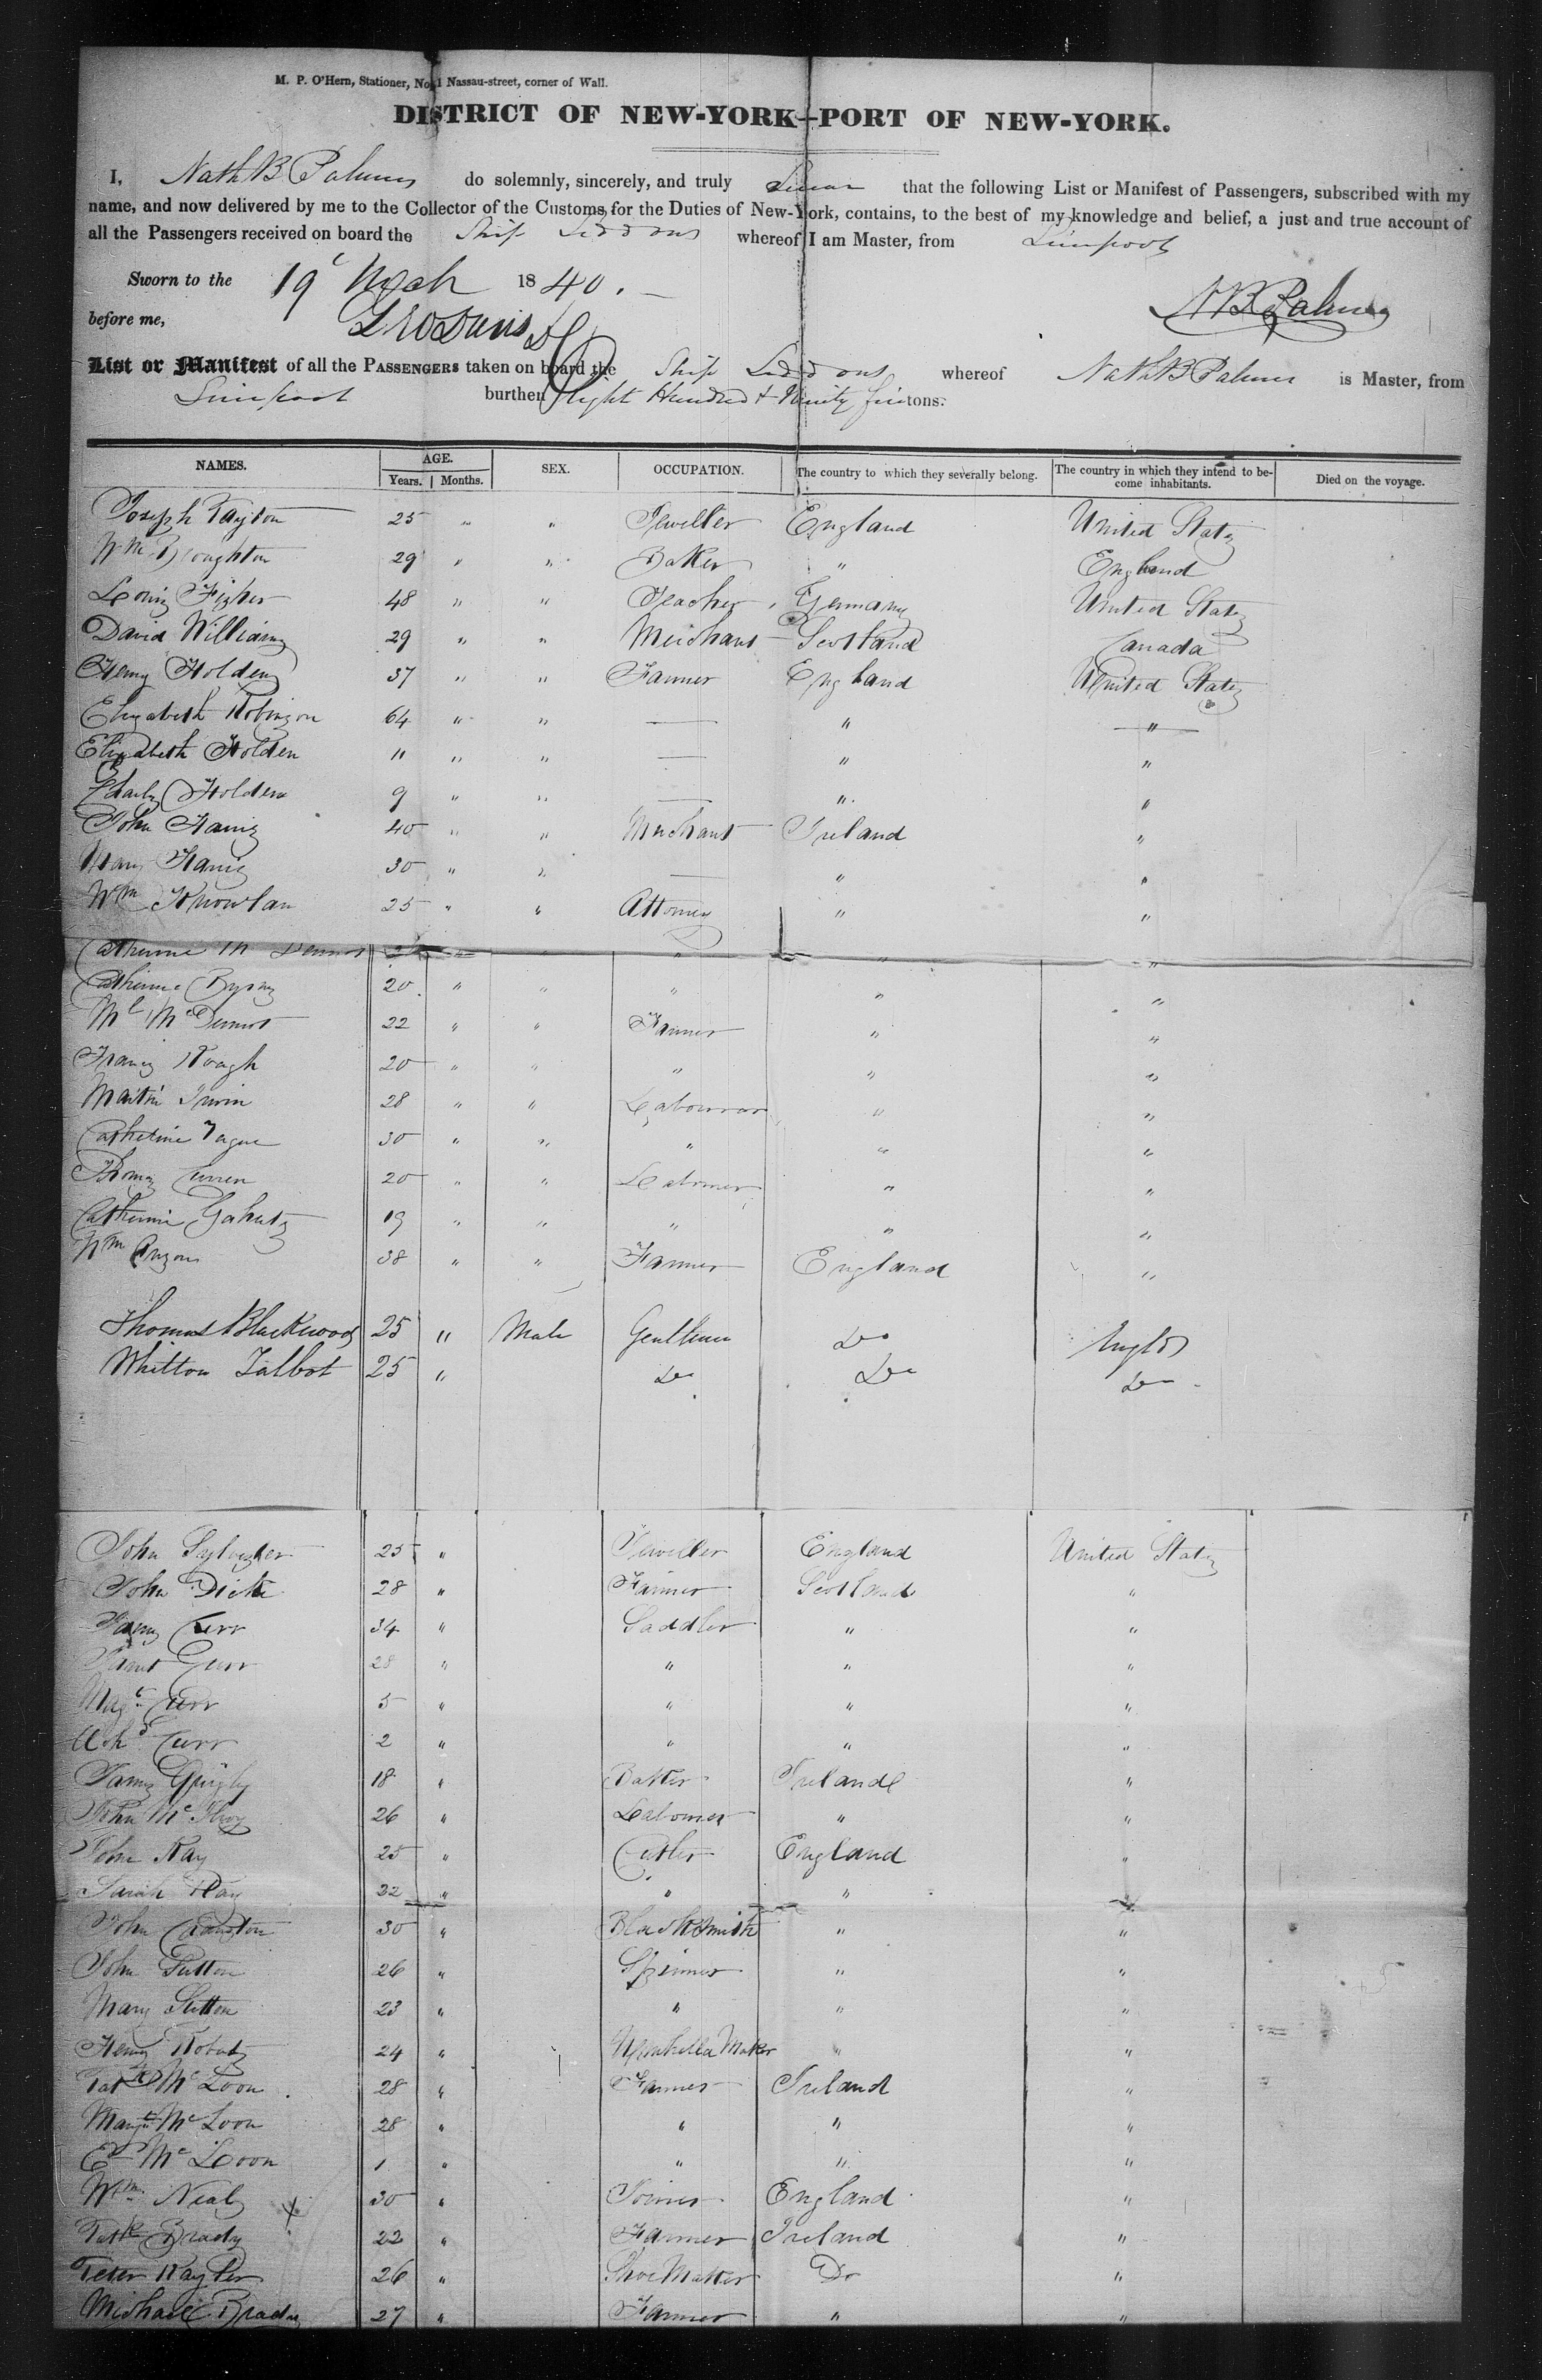 M. P. O'Hern, Stationer, No. 1 Nassau-street, corner of Wall.
DISTRICT OF NEW-YORK—PORT OF NEW-YORK.
I, Nath B Palmer do solemnly, sincerely, and truly Swear that the following List or Manifest of Passengers, subscribed with my
name, and now delivered by me to the Collector of the Customs, for the Duties of New-York, contains, to the best of my knowledge and belief, a just and true account of
all the Passengers received on board the Ship Siddons whereof I am Master, from Liverpool
Sworn to the 19 March 1840.
before me,
N B Palmer
List or Manifest of all the PASSENGERS taken on board the Ship Siddons whereof Nath B Palmer is Master, from
Liverpool burthen Eight Hundred & Ninety five tons.
NAMES. AGE. SEX. OCCUPATION. The country to which they severally belong. The country in which they intend to become inhabitants. Died on the voyage.
Years. Months.
Joseph Tayton 25 " " Jeweller England United States
Wm Broughton 29 " " Baker " England
Louis Fisher 48 " " Teacher Germany United States
David Williams 29 " " Merchant Scotland Canada
Henry Holden 37 " " Farmer England United States
Elizabeth Robinson 64 " " — " "
Elizabeth Holden 11 " " — " "
Charles Holden 9 " " — " "
John 40 " " Merchant Ireland "
Mary 30 " " — " "
Wm Knowlan 25 " " Attorney " "
Catherine Mc Dermot " " " " "
Catherine 20 " " " " "
Ml McDermot 22 " " Farmer " "
Francis Rough 20 " " " " "
Martin Irwin 28 " " Labourer " "
Catherine Tague 30 " " " " "
Thomas Curren 20 " " Labourer " "
Catherine 19 " " " " "
Wm 38 " " Farmer England "
Thomas Blackwood 25 " Male Gentleman Do Engld
Whitton Talbot 25 " Do Do Do
John Sylvester 25 " Jeweller England United States
John Dick 28 " Farmer Scotland "
James Curr 34 " Saddler " "
Janet Curr 28 " " " "
Magt Curr 5 " " " "
Curr 2 " " " "
James Quigley 18 " Baker Ireland "
John McIlroy 26 " Labourer " "
John Ray 25 " Cutler England "
Sarah Ray 22 " " " "
John 30 " Blacksmith " "
John Sutton 26 " Spinner " "
Mary Sutton 23 " " " "
Henry Roberts 24 " Umbrella Maker " "
Patk McLoon 28 " Farmer Ireland "
Margt McLoon 28 " " " "
McLoon 1 " " " "
Wm Neal 30 " Joiner England "
Patk Brady 22 " Farmer Ireland "
Peter 26 " Shoe Maker Do "
Michael Brady 27 " Farmer " "